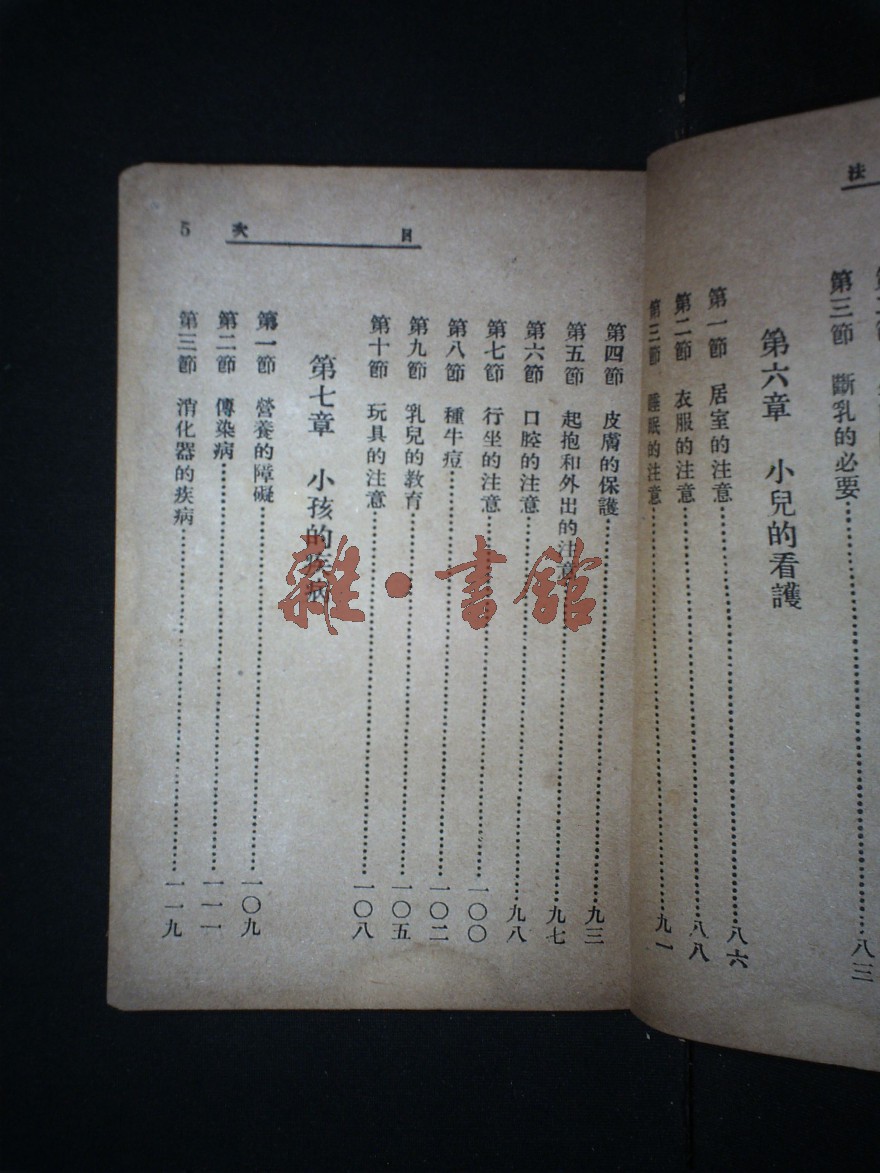 法
第三節　斷乳的必要……八三
第六章　小兒的看護
第一節　居室的注意……八六
第二節　衣服的注意……八八
第三節　睡眠的注意……九一
目次　5
第四節　皮膚的保護……九三
第五節　起抱和外出的注意……九七
第六節　口腔的注意……九八
第七節　行坐的注意……一〇〇
第八節　種牛痘……一〇二
第九節　乳兒的教育……一〇五
第十節　玩具的注意……一〇八
第七章　小孩的疾病
第一節　營養的障礙……一〇九
第二節　傳染病……一一一
第三節　消化器的疾病……一一九
雜·書館